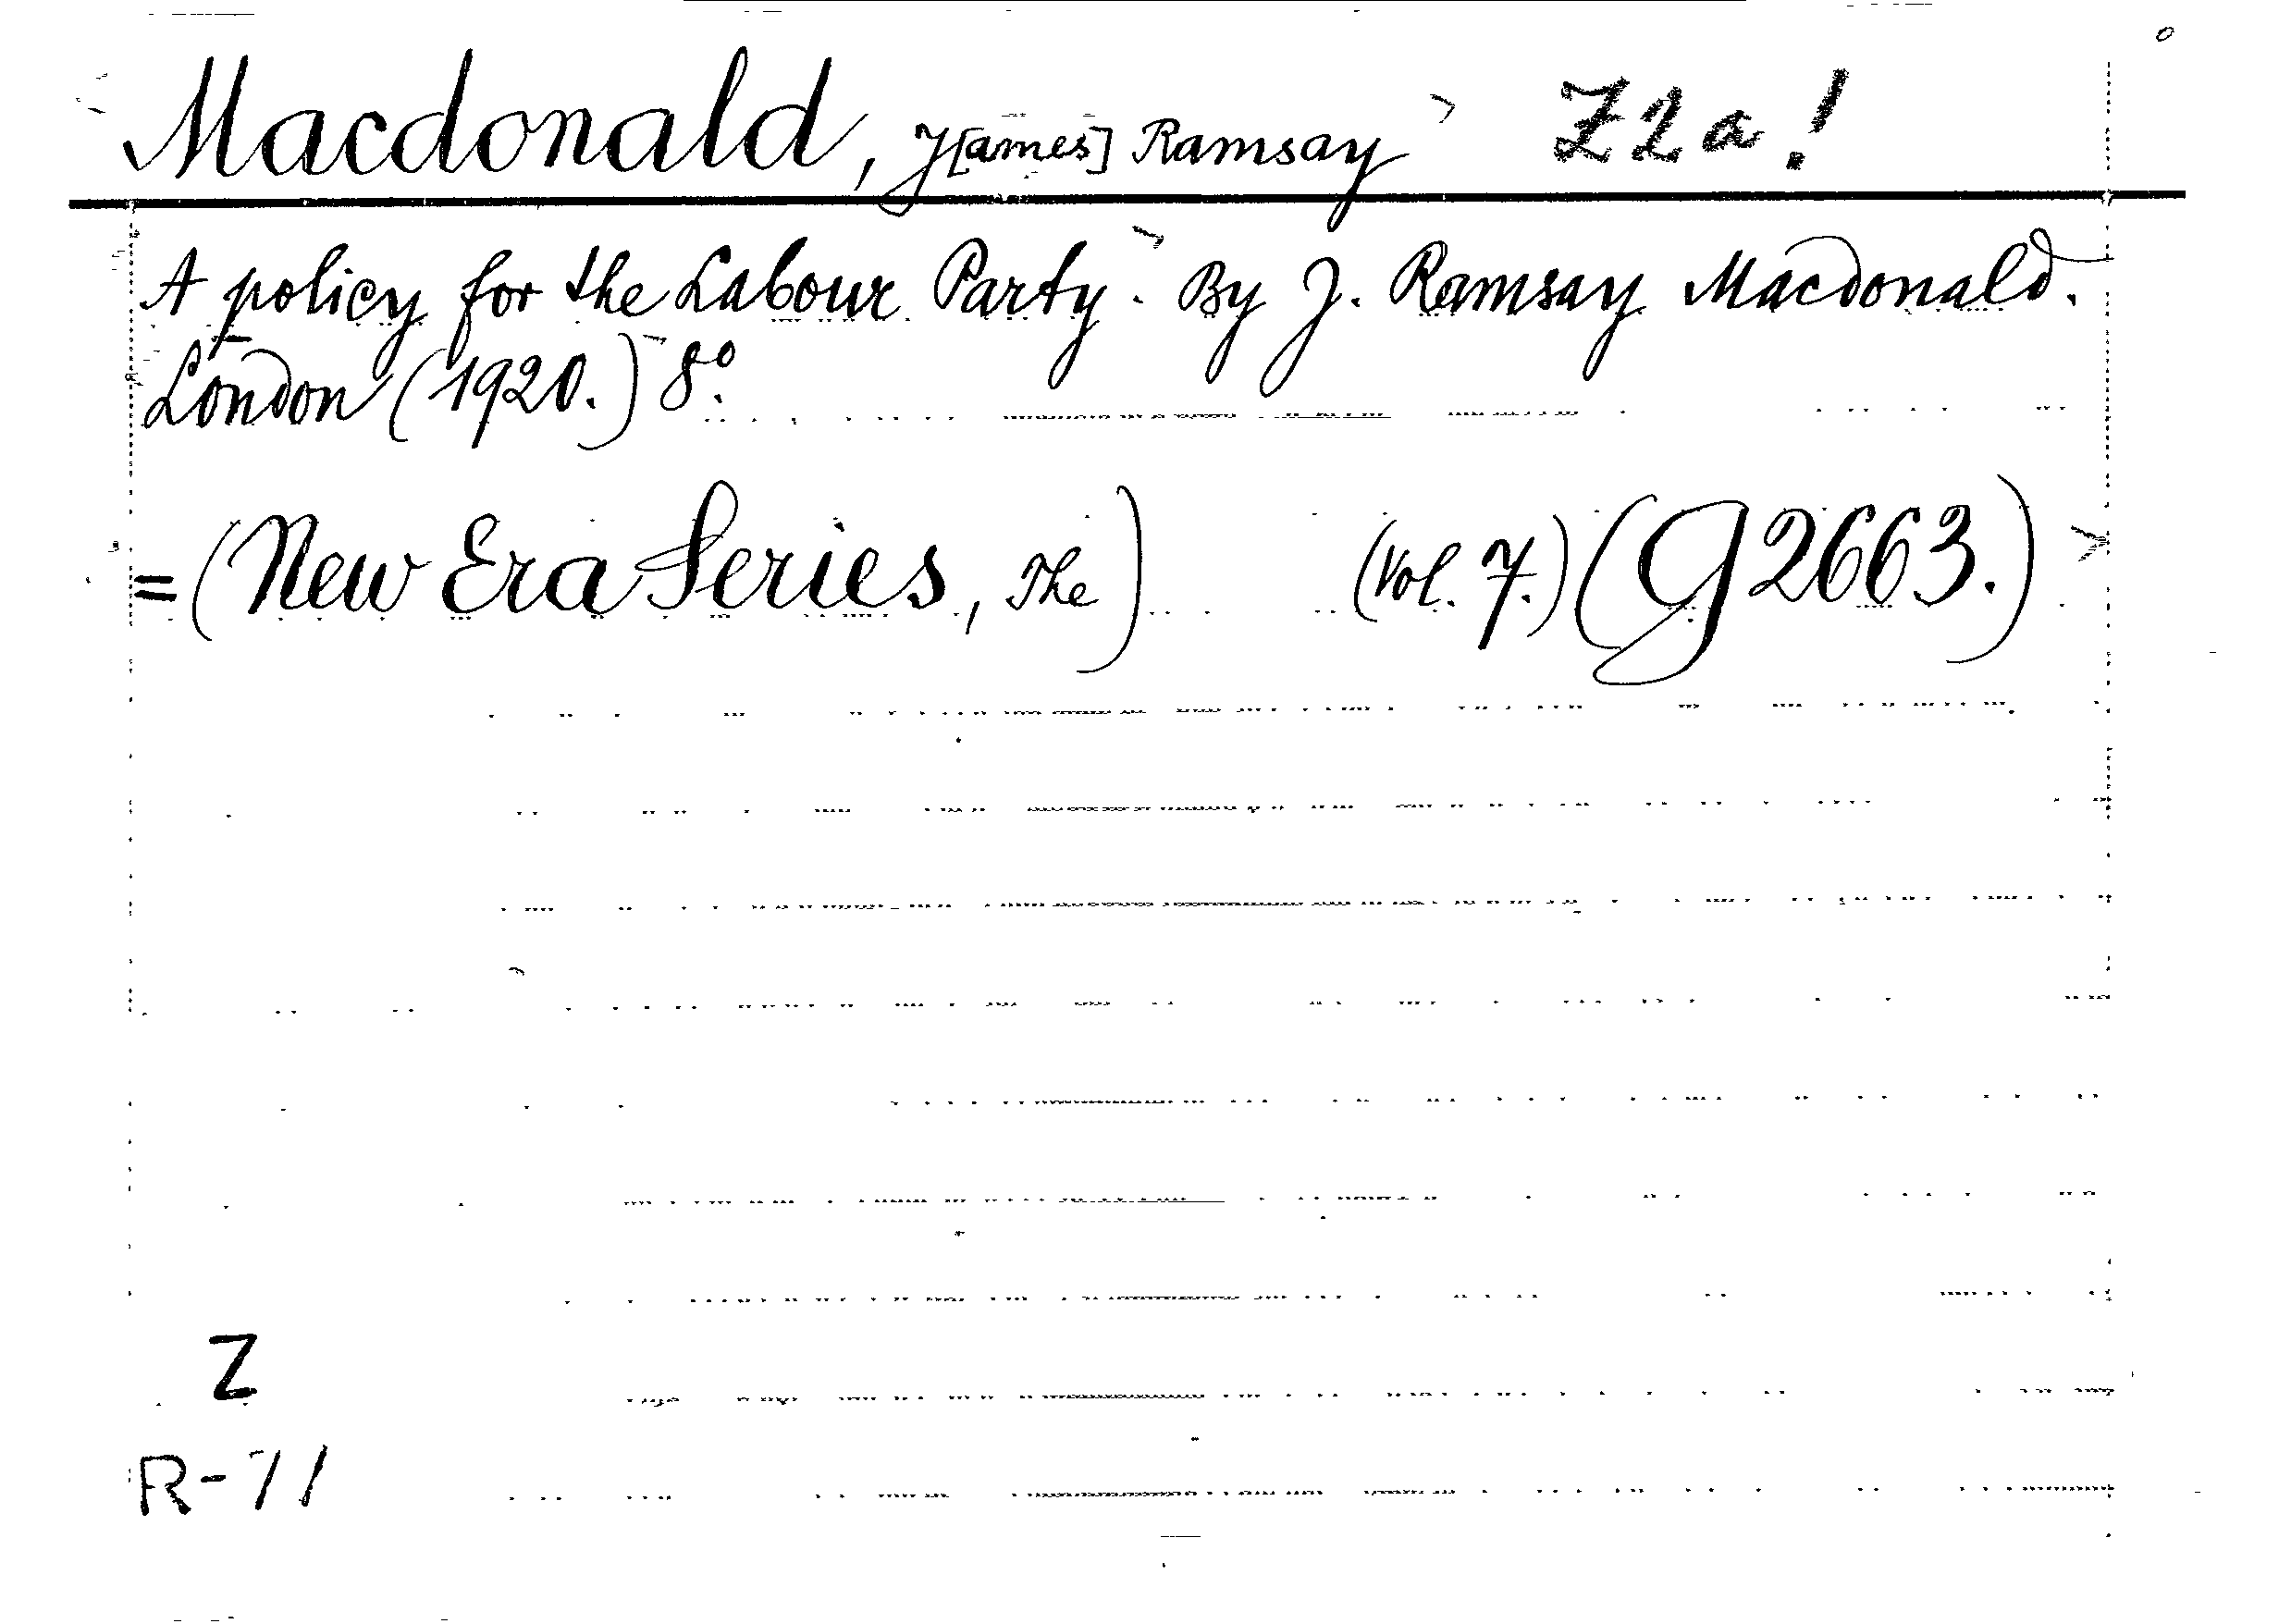 Macdonald, J[ames] Ramsay Z2a!
A policy for the Labour Party. By J. Ramsay Macdonald.
London (1920.) 8°.
=(New Era Series, The) (Vol. 7.) (G2663.)
Z
R-71